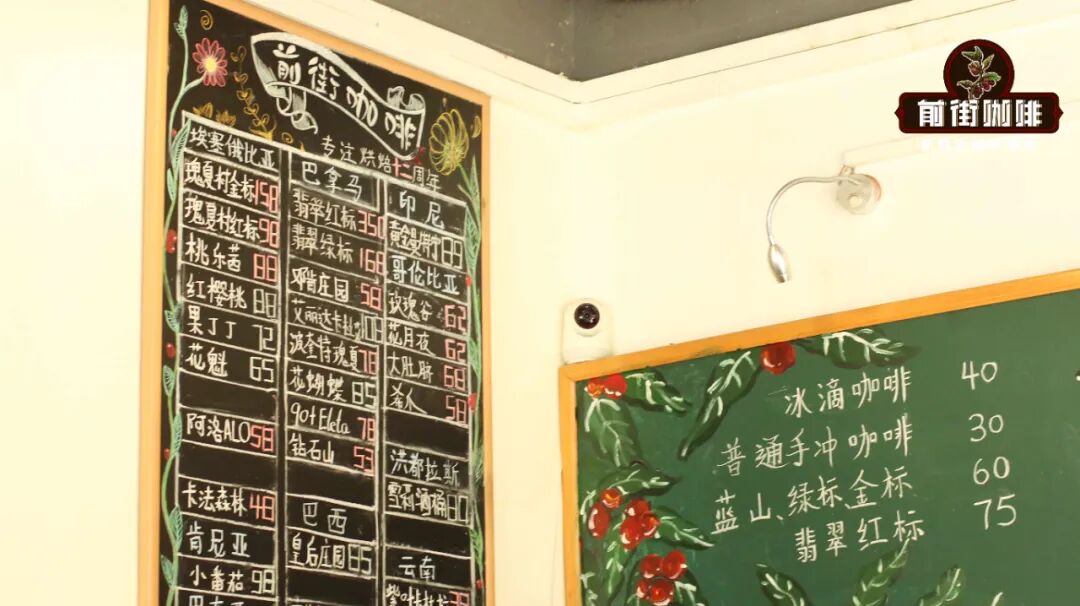 前街咖啡
专注烘焙十二周年
埃塞俄比亚
瑰夏村金标 158
瑰夏村红标 98
桃乐茜 88
红樱桃 88
果丁丁 72
花魁 65
阿洛ALO 58
卡法森林 48
肯尼亚
小番茄 98
巴拿马
翡翠红标 350
翡翠绿标 168
邓肯庄园 58
艾丽达卡杜艾
波奎特瑰夏 78
花蝴蝶 85
90+ 78
钻石山 53
巴西
皇后庄园 85
印尼
黄金曼特宁 89
哥伦比亚
玫瑰谷 62
花月夜 62
大肚脐 68
58
洪都拉斯
雪莉酒桶 80
云南
冰滴咖啡 40
普通手冲咖啡 30
蓝山、绿标、金标 60
翡翠红标 75
前街咖啡